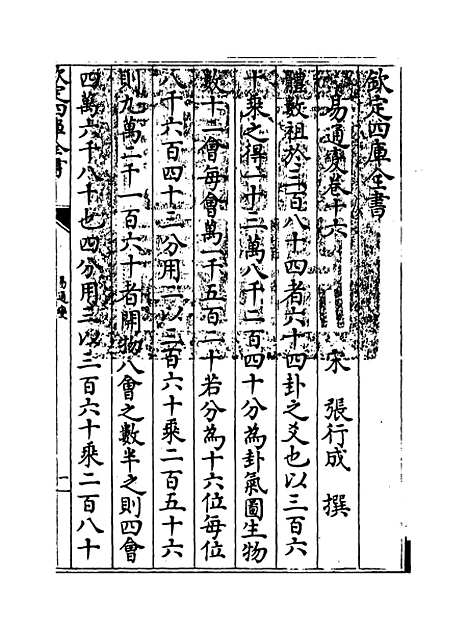 欽定四庫全書
易通變卷十六
宋 張行成 撰
體數祖於三百八十四者六十四卦之爻也以三百六
十乘之得一十三萬八千二百四十分為卦氣圖生物
數十二會每會萬一千五百二十若分為十六位每位
八千六百四十三分用二以三百六十乘二百五十六
則九萬二千一百六十者開物八會之數半之則四會
四萬六千八十也四分用三以三百六十乘二百八十
欽定四庫全書
易通變
一